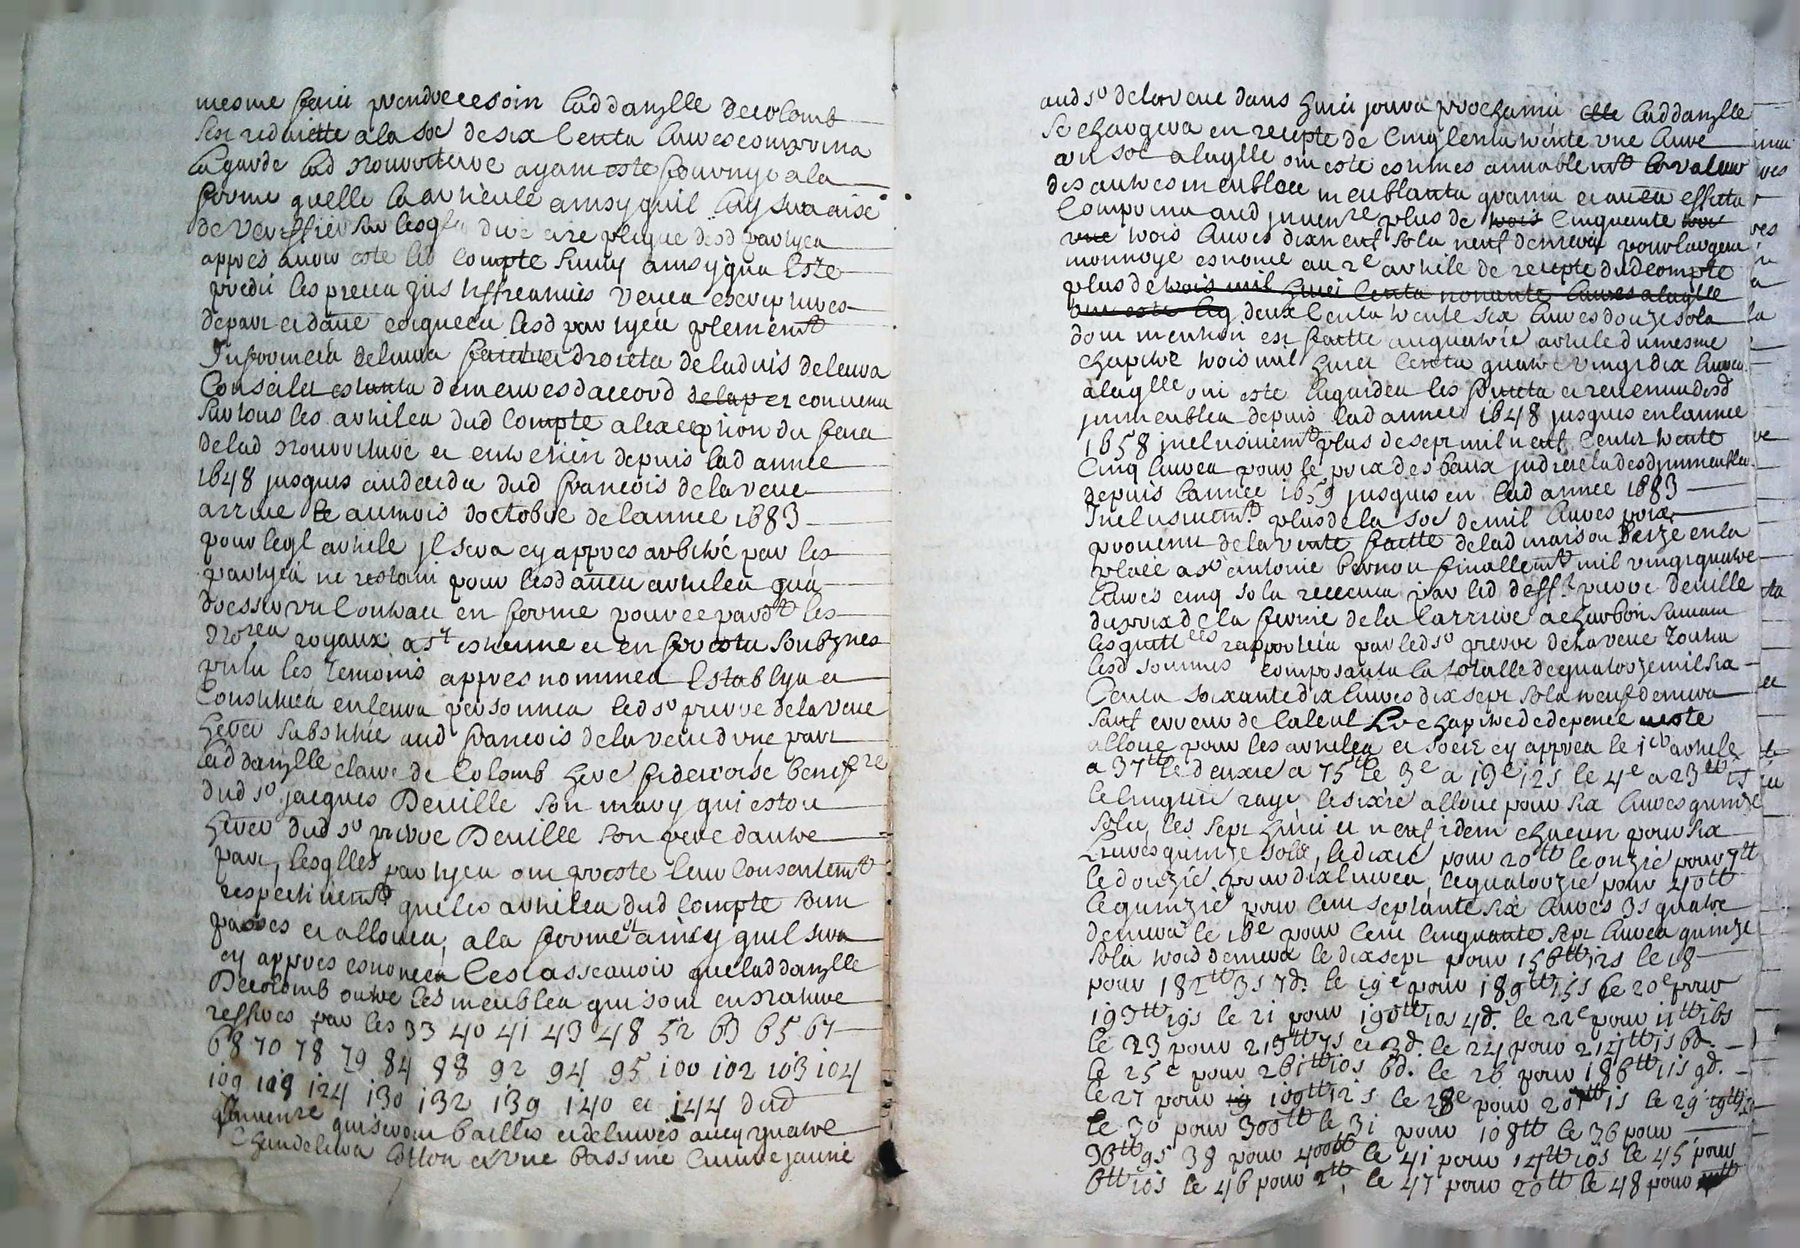 mesme faict prendre ce soin lad danzlle Decolomb
sest reduitte a la soe de six centz livres comprins
la garde lad nourriture ayant este fournye a la
forme quelle la articule ainsy quil luy sera aisé
de veriffier sur
appres avoir este led compte suivy ainsy qua l'este
predit les pretentions differantes veues
de part et dautre
Informees de leurs faitz et droictz de ladvis de leurs
Conseilz estants demeures daccord de la p et convenu
sur tous les articles dud compte a lexception du faict
de lad nourriture et entretien depuis lad annee
1648 jusques au deces dud francois delaveue
arrive le au mois doctobre de lannee 1683
pour leql article il sera cy appres arbitré par les
partyes ne restant pour lesd autres articles qua
dresser un contract en forme pour ce pardt les
nores royaux a st estienne et en forests soubznes
pntz les temoins appres nommes establys et
Constitues en leurs personnes led sr pierre delaveue
herer substitue aud francois delaveue dune part
lad danzlle claire de Colomb here fideicoise benifre
dud sr jacques Deville son mary qui estoit
herer dud sr pierre Deville son pere dautre
part, lesqlles partyes ont preste leur consentemt
respectivemt que les articles dud compte sont
passes et alloues, a la forme et ainsy quil sera
cy appres enonces Cest asscavoir que lad danzlle
Decolomb outre les meubles qui sont en nature
restives par les 33 40 41 43 48 52 63 65 67
68 70 78 79 84 88 92 94 95 100 102 103 104
109 119 124 130 132 139 140 et 144 dud
Inventre qui seront bailles et delivres avec quatre
chandeliers cotton et une bassine cuivre jaune
aud sr delaveue dans huict jours prochains elle lad danzlle
se chargera en recepte de cinq centz trente une livre
un sol a laqlle ont este estimes amiablemt la valeur
des autres meubles meublantz grains et autres effectz
comprins aud inventre plus de trois cinquante
une trois livres dix neuf solz neuf deniers pour largent
monnoye enonce au 2e article de recepte dud compte
plus de trois mil huict centz nonante livres a laqlle
deux centz trente six livres douze solz
dont mention est faitte au quatrie article du mesme
chapitre trois mil huict centz quatre vingt dix livres
a laqlle ont este les fruictz et revenus desd
immeubles depuis lad annee 1648 jusques en lannee
1658 inclusivemt plus de sept mil neuf centz trente
cinq livres pour le prix des baux judicielz desd immeubles
depuis lannee 1659 jusques en lad annee 1683
Inclusivemt plus de la soe de mil livres prix
provenu de la vente faitte de lad maison size en la
place a sr antoine bernou finallemt mil vingt quatre
livres cinq solz receus par led deff. pierre deville
du prix de la ferme de la Carriere a charbon suivant
les quittces rapportees par led sr pierre delaveue toutes
lesd sommes composants la totalle de quatorze mil six
Centz soixante dix livres dix sept solz neuf deniers
sauf erreur de calcul Le chapitre de depence reste
alloue pour les articles et soes cy appres le 1er article
a 37tt le deuxie a 75tt le 3e a 19tt 12s le 4e a 23tt
le cinquie raye le sixie alloue pour six livres quinze
solz, les sept huict et neuf idem chacun pour six
Livres quinze solz, le dixie pour 20tt le onzie pour 7tt
le douzie pour dix livres, le quatorzie pour 40tt
le quinzie pour cent septante six livres 3s quatre
deniers le 16e pour cent cinquante sept livres quinze
solz trois deniers le dix sept pour 156tt 12s le 18
pour 182tt 3s 7d. le 19e pour 189tt 15s le 20e pour
193tt 19s le 21 pour 190tt 10s 4d. le 22e pour 11tt 16s
le 23 pour 213tt 7s et 2d. le 24 pour 214tt 1s 6d.
le 25e pour 261tt 10s 6d. le 26 pour 186tt 11s 9d.
le 27 pour 109tt 12s le 28e pour 201tt 1s le 29
le 30 pour 300tt le 31 pour 108tt le 36 pour
36tt 9s 38 pour 400tt le 41 pour 14tt 10s le 45 pour
6tt 10s le 46 pour 2tt, le 47 pour 20tt le 48 pour